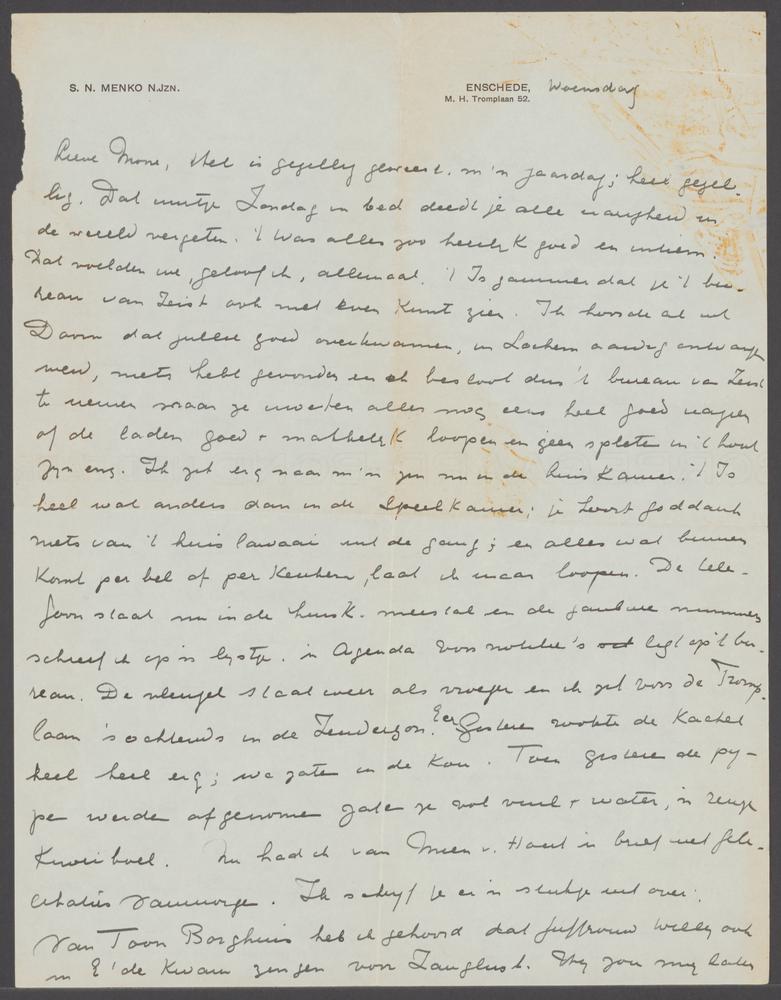 S. N. MENKO N.JZN.
ENSCHEDE, Woensdag
M. H. Tromplaan 52.
Lieve Mone, Het is gezellig geweest. m'n jaardag; heel gezel-
lig. Dat uurtje Zondag in bed deedt je alle narigheid in
de wereld vergeten. 't Was alles zoo heerlijk goed en intiem.
Dat voelden we, geloof ik, allemaal. 't Is jammer dat je 't bu-
reau van Zeist ook niet even kunt zien. Ik hoorde al uit
Doorn dat jullie goed overkwamen, in Lochem aardig ontvangen
werd, niets hebt gevonden en ook besloot dus 't bureau van Zeist
te nemen maar ze moeten alles nog eens heel goed nazien
of de laden goed + makkelijk loopen en geen spleten in 't hout
zijn enz. Ik zit erg naar m'n zin nu in de huiskamer. 't Is
heel wat anders dan in de Speelkamer; je hoort goddank
niets van 't huis lawaai uit de gang; en alles wat binnen
komt per bel of per keuken, laat ik maar loopen. De tele-
foon staat nu in de huisk. meestal en de gaubare nummers
schreef ik op 'n lijstje. 'n Agenda voor notitie's ligt op 't bu-
reau. De vleugel staat weer als vroeger en ik zit voor de Tromp-
laan 's ochtends in de Zonderzon. Eer Gisteren rookte de kachel
heel heel erg; we zaten in de kou. Toen gisteren de pij-
pen werden afgenomen zaten ze vol vuil + water, 'n
boel. Nu had ik van Mien v. Hout 'n brief met feli-
citaties vanmorgen. Ik schrijf je er 'n stukje uit over:
Van Toon Borghuis heb ik gehoord dat Juffrouw Willy ook
in E'de kwam zingen voor Zanglust. Wij zou mij later